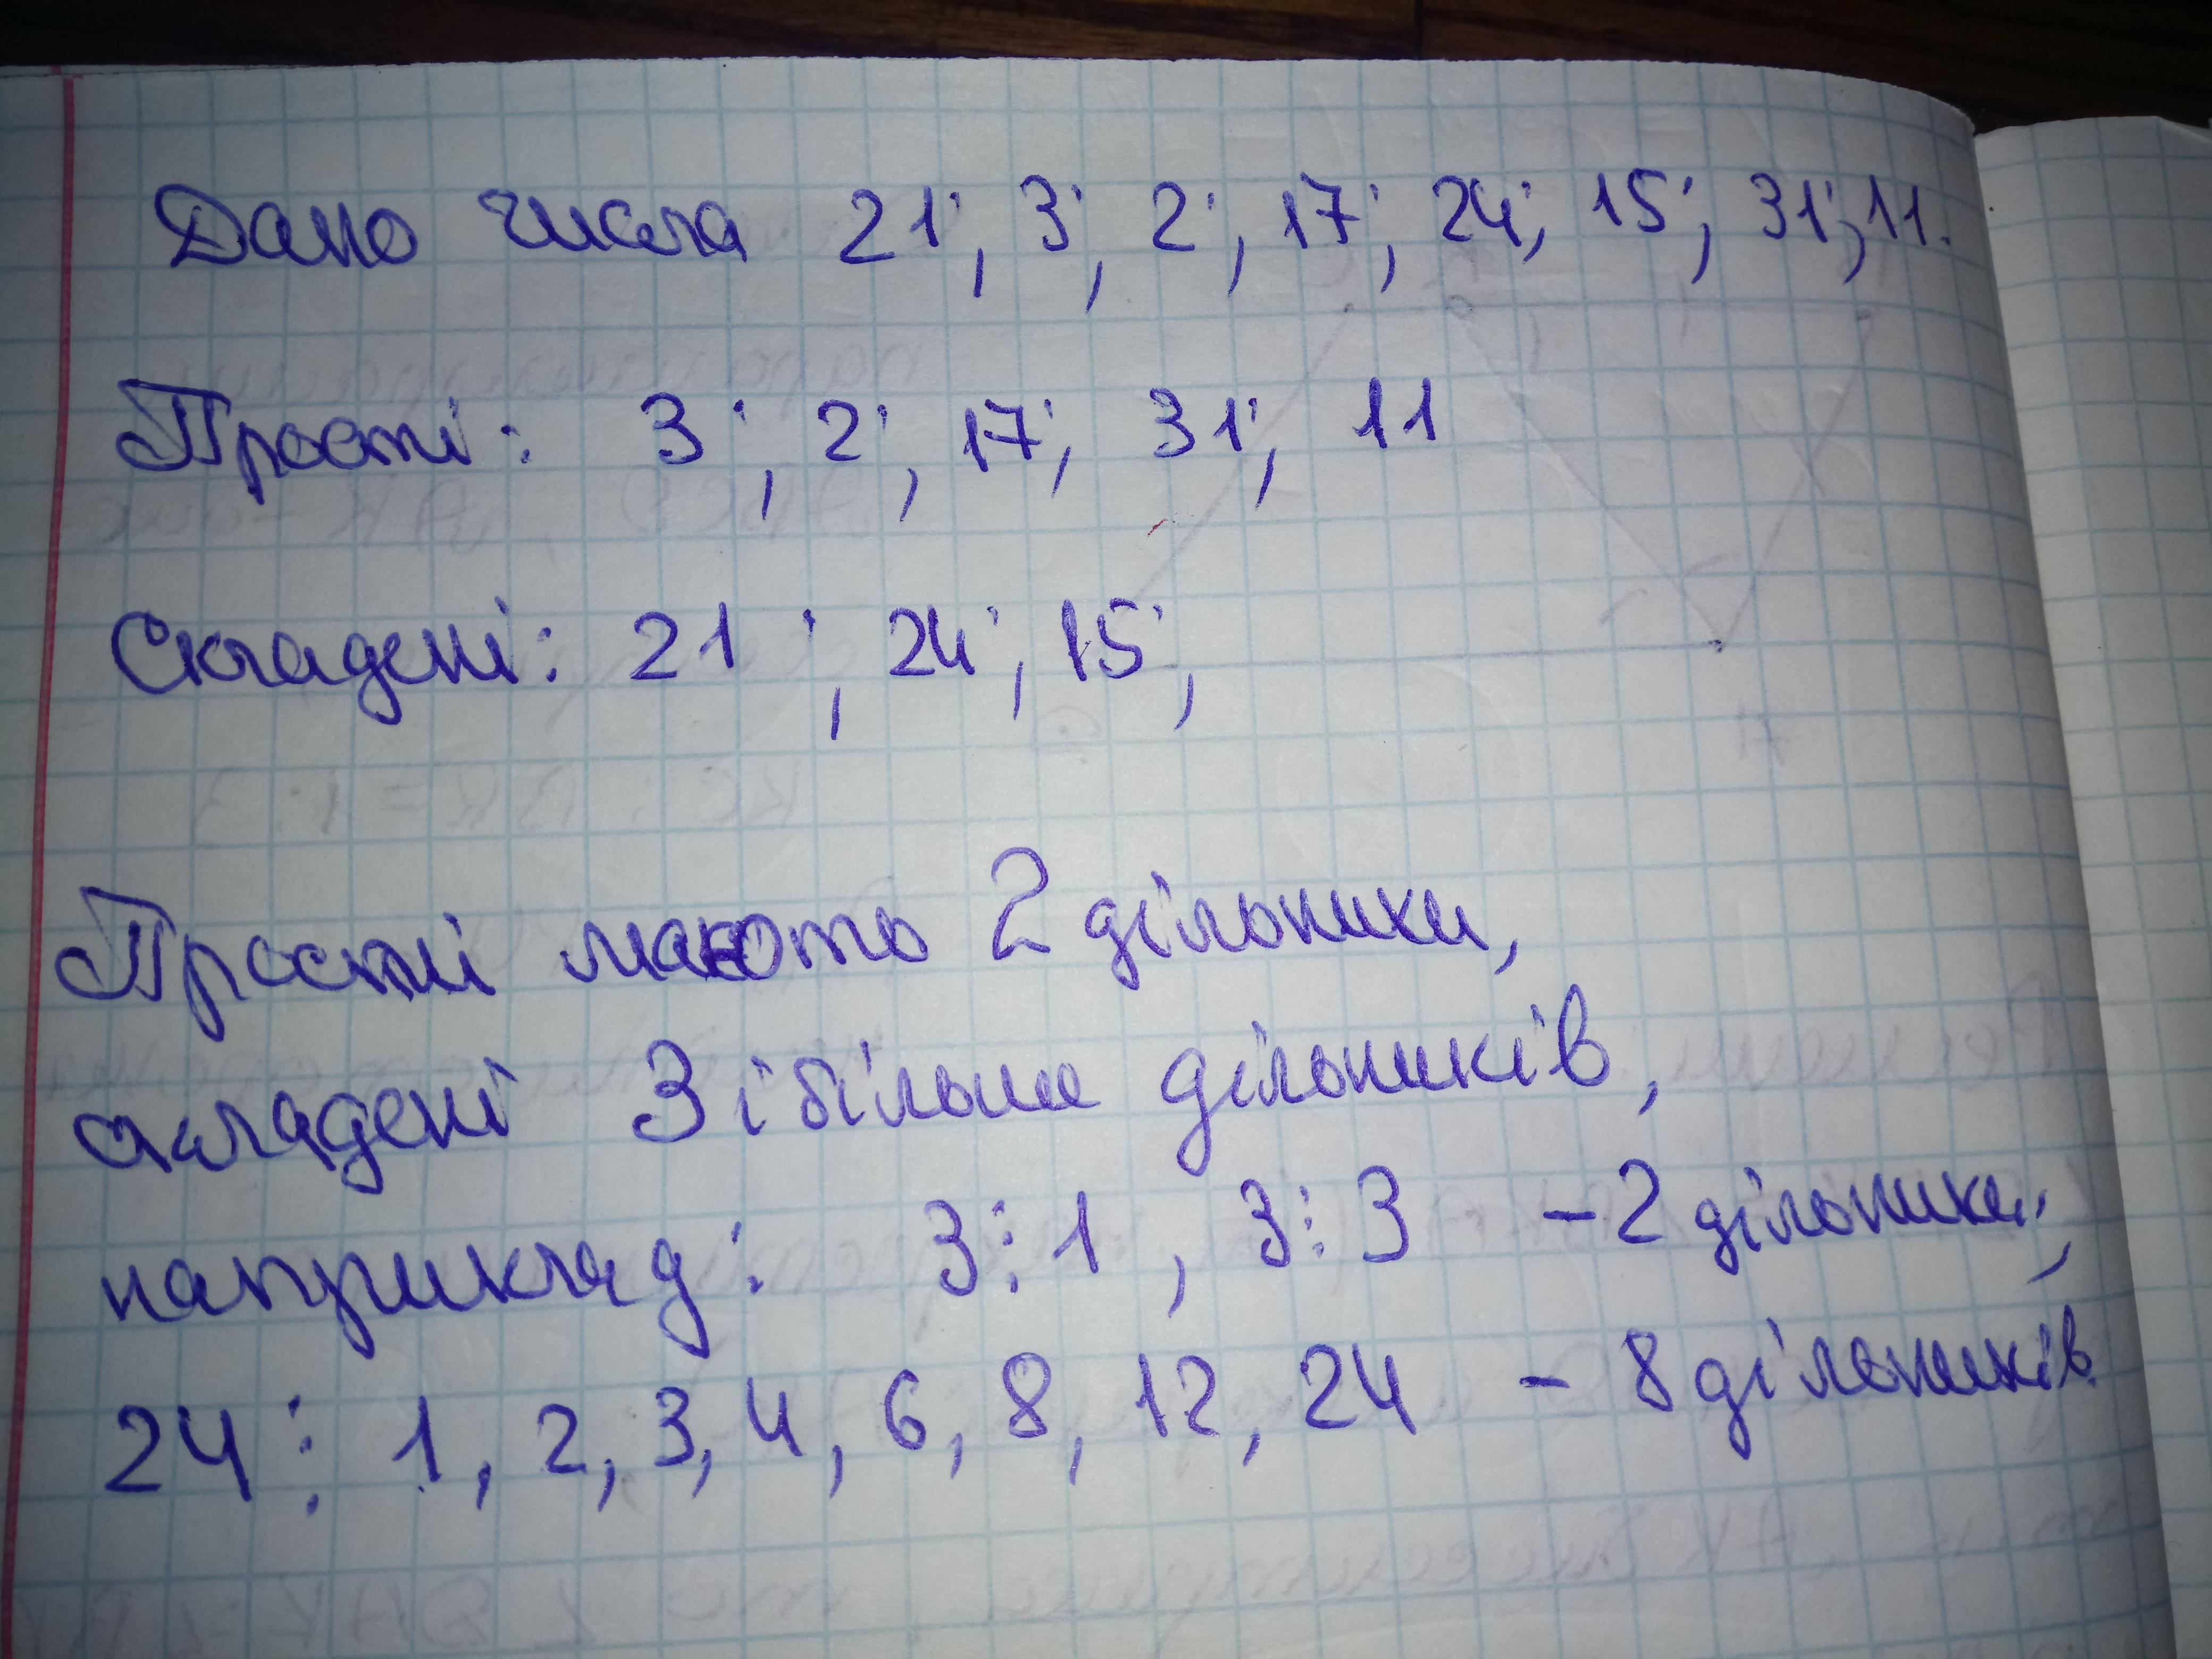 Дано числа 21; 3; 2; 17; 24; 15; 31; 11.
Прості: 3; 2; 17; 31; 11
Складені: 21; 24; 15;
Прості мають 2 дільники,
складені 3 і більше дільників,
наприклад: 3:1, 3:3 - 2 дільники;
24: 1, 2, 3, 4, 6, 8, 12, 24 - 8 дільників
KC : BK = 1 : 3